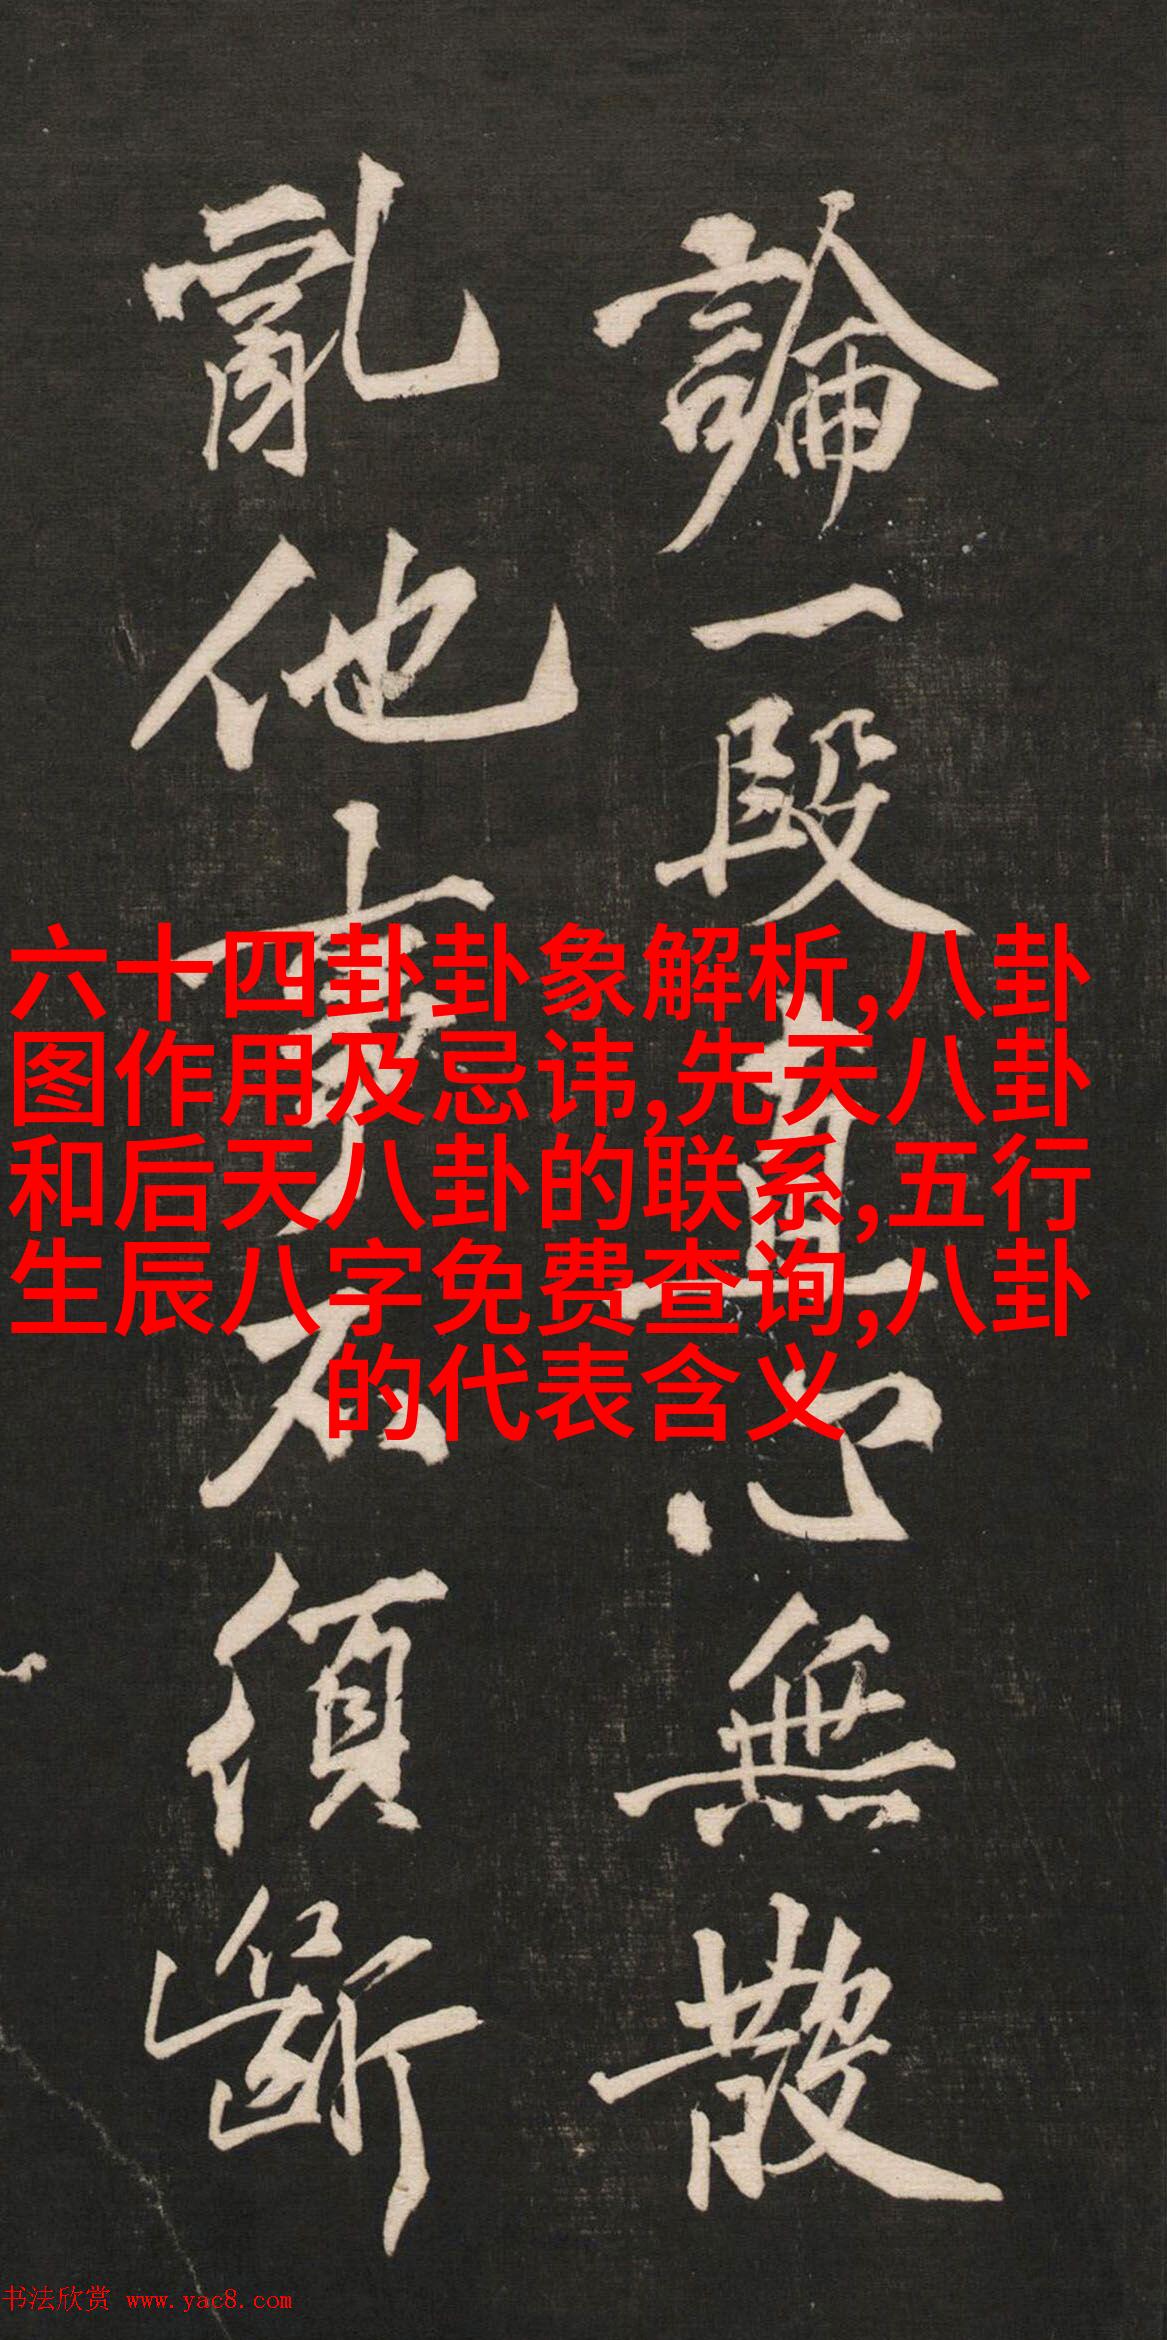 論一段真心無散
亂他事不須斷
六十四卦卦象解析,八卦
图作用及忌讳,先天八卦
和后天八卦的联系,五行
生辰八字免费查询,八卦
的代表含义
书法欣赏 www.yac8.com